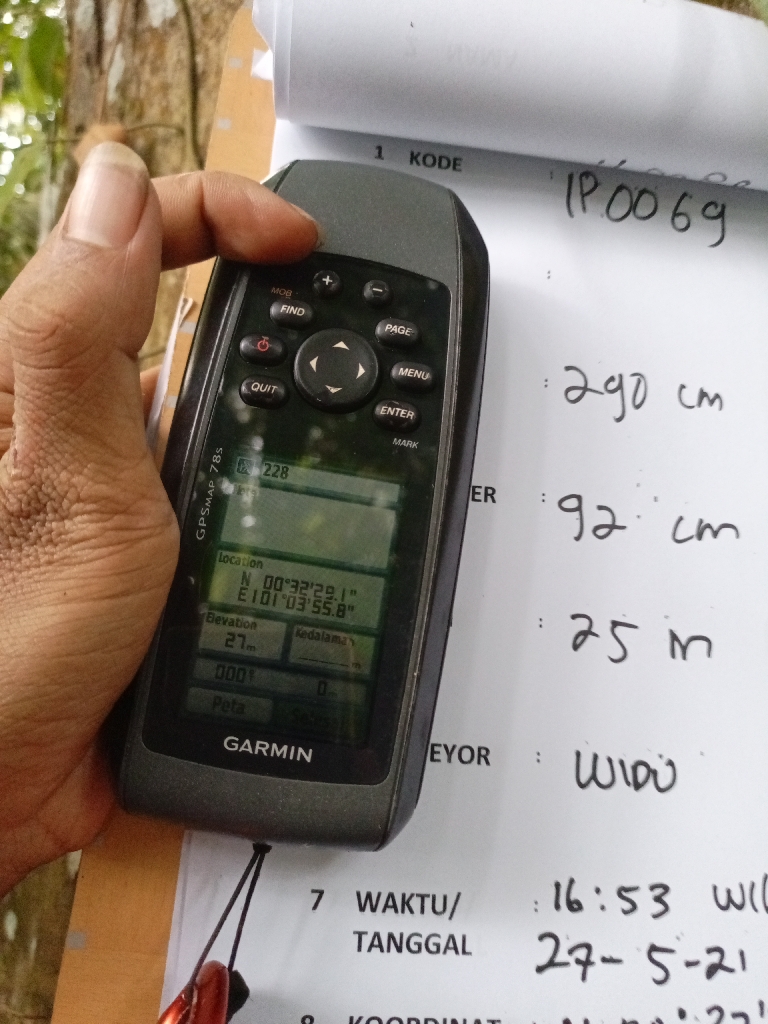 1 KODE : IP0069
:
: 290 cm
ER : 92 cm
: 25 m
EYOR : WIDO
7 WAKTU/ : 16:53 WI
TANGGAL 27-5-21
8 KOORDINAT
+
-
MOB
FIND
PAGE
MENU
QUIT
ENTER
MARK
GPSMAP 78s
228
Location
N 00°32'29.1"
E101°03'55.8"
Elevation
27m
Kedalaman
m
000°
0
Peta
GARMIN